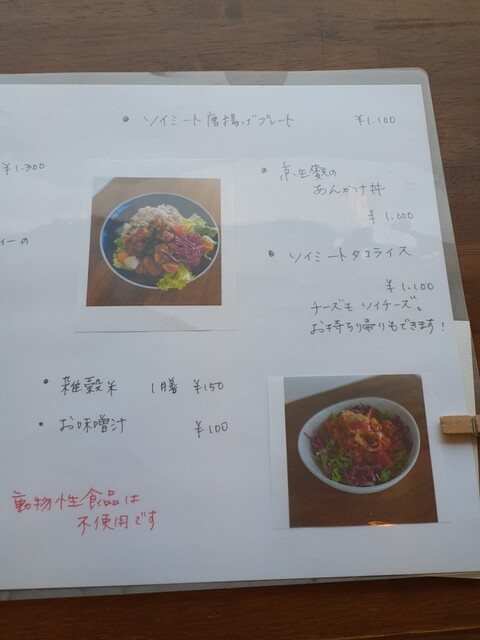 • ソイミート唐揚げプレート ¥1.100
¥1.300
• 京生麩の
あんかけ丼
¥1.000
ィーの
• ソイミートタコライス
¥1.100
チーズもソイチーズ。
お持ち帰りもできます!
• 雑穀米 1膳 ¥150
• お味噌汁 ¥100
動物性食品は
不使用です